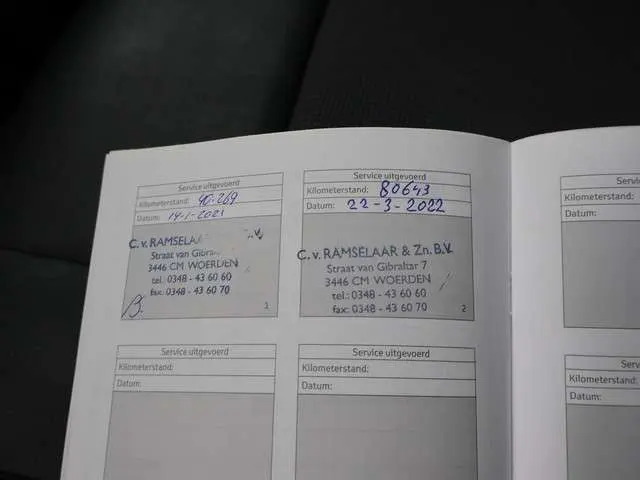 Service uitgevoerd
Kilometerstand: 40.269
Datum: 14-1-2021
C. v. RAMSELA
Straat van Gibra
3446 CM WOERDEN
tel.: 0348 - 43 60 60
fax: 0348 - 43 60 70
1
Service uitgevoerd
Kilometerstand: 80643
Datum: 22-3-2022
C. v. RAMSELAAR & Zn. B.V.
Straat van Gibraltar 7
3446 CM WOERDEN
tel.: 0348 - 43 60 60
fax: 0348 - 43 60 70
2
Service uitgevoerd
Kilometerstand:
Datum:
Service uitgevoerd
Kilometerstand:
Datum:
Kilometerstand:
Datum:
Serv
Kilometerstand:
Datum: